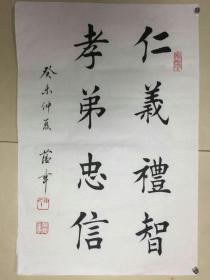 仁義禮智
孝弟忠信
癸未仲夏